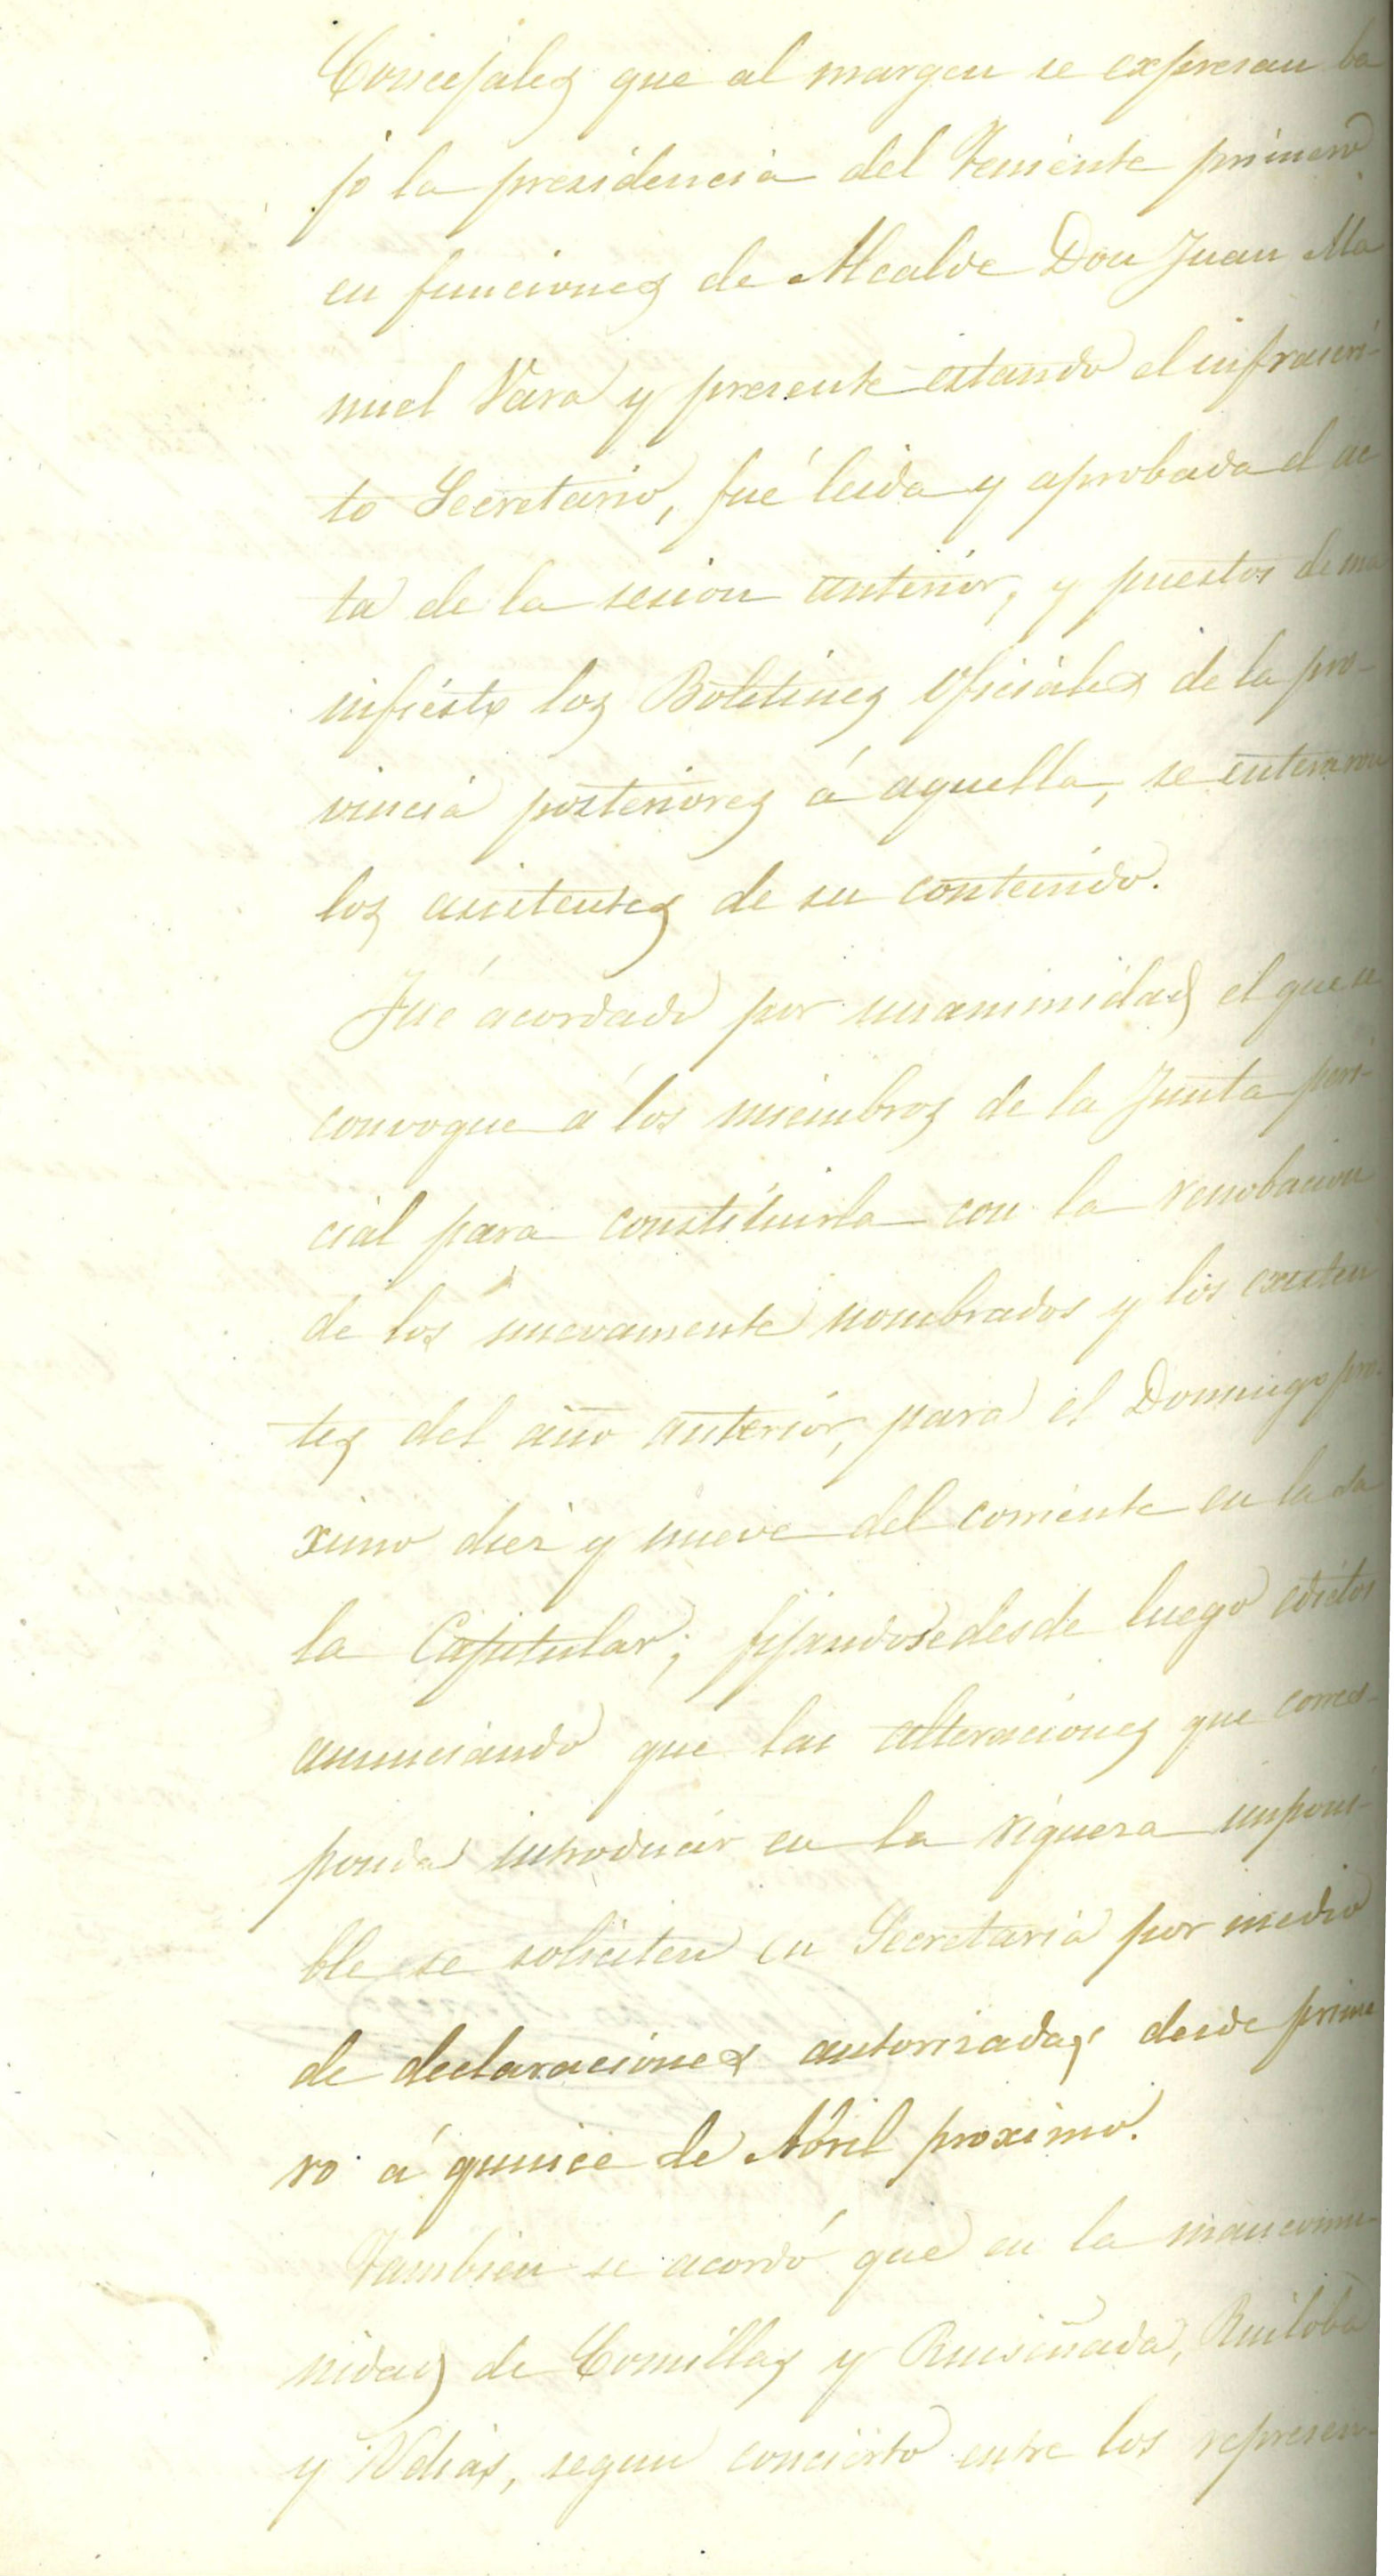 Concejales que al margen se expresan ba
jo la presidencia del Teniente primero
en funciones de Alcalde Don Juan Ma
nuel Vara y presente estando el infrascri-
to Secretario, fué leida y aprobada el ac
ta de la sesion anterior, y puestos de ma
nifiesto los Boletines Oficiales de la pro-
vincia posteriores á aquella, se enteraron
los asistentes de su contenido.
Fué acordado por unanimidad el que se
convoque á los miembros de la Junta peri-
cial para constituirla con la renobacion
de los nuevamente nombrados y los existen
tes del año anterior, para el Domingo pro-
ximo diez y nueve del corriente en la sa
la Capitular; fijandose desde luego edictos
anunciando que las alteraciones que corres-
ponda introducir en la riqueza imponi-
ble se soliciten en Secretaria por medio
de declaraciones autorizadas desde prime
ro á quince de Abril proximo.
Tambien se acordó que en la mancomu-
nidad de Comillas y Ruiseñada, Ruiloba
y Udias, segun concierto entre los represen-